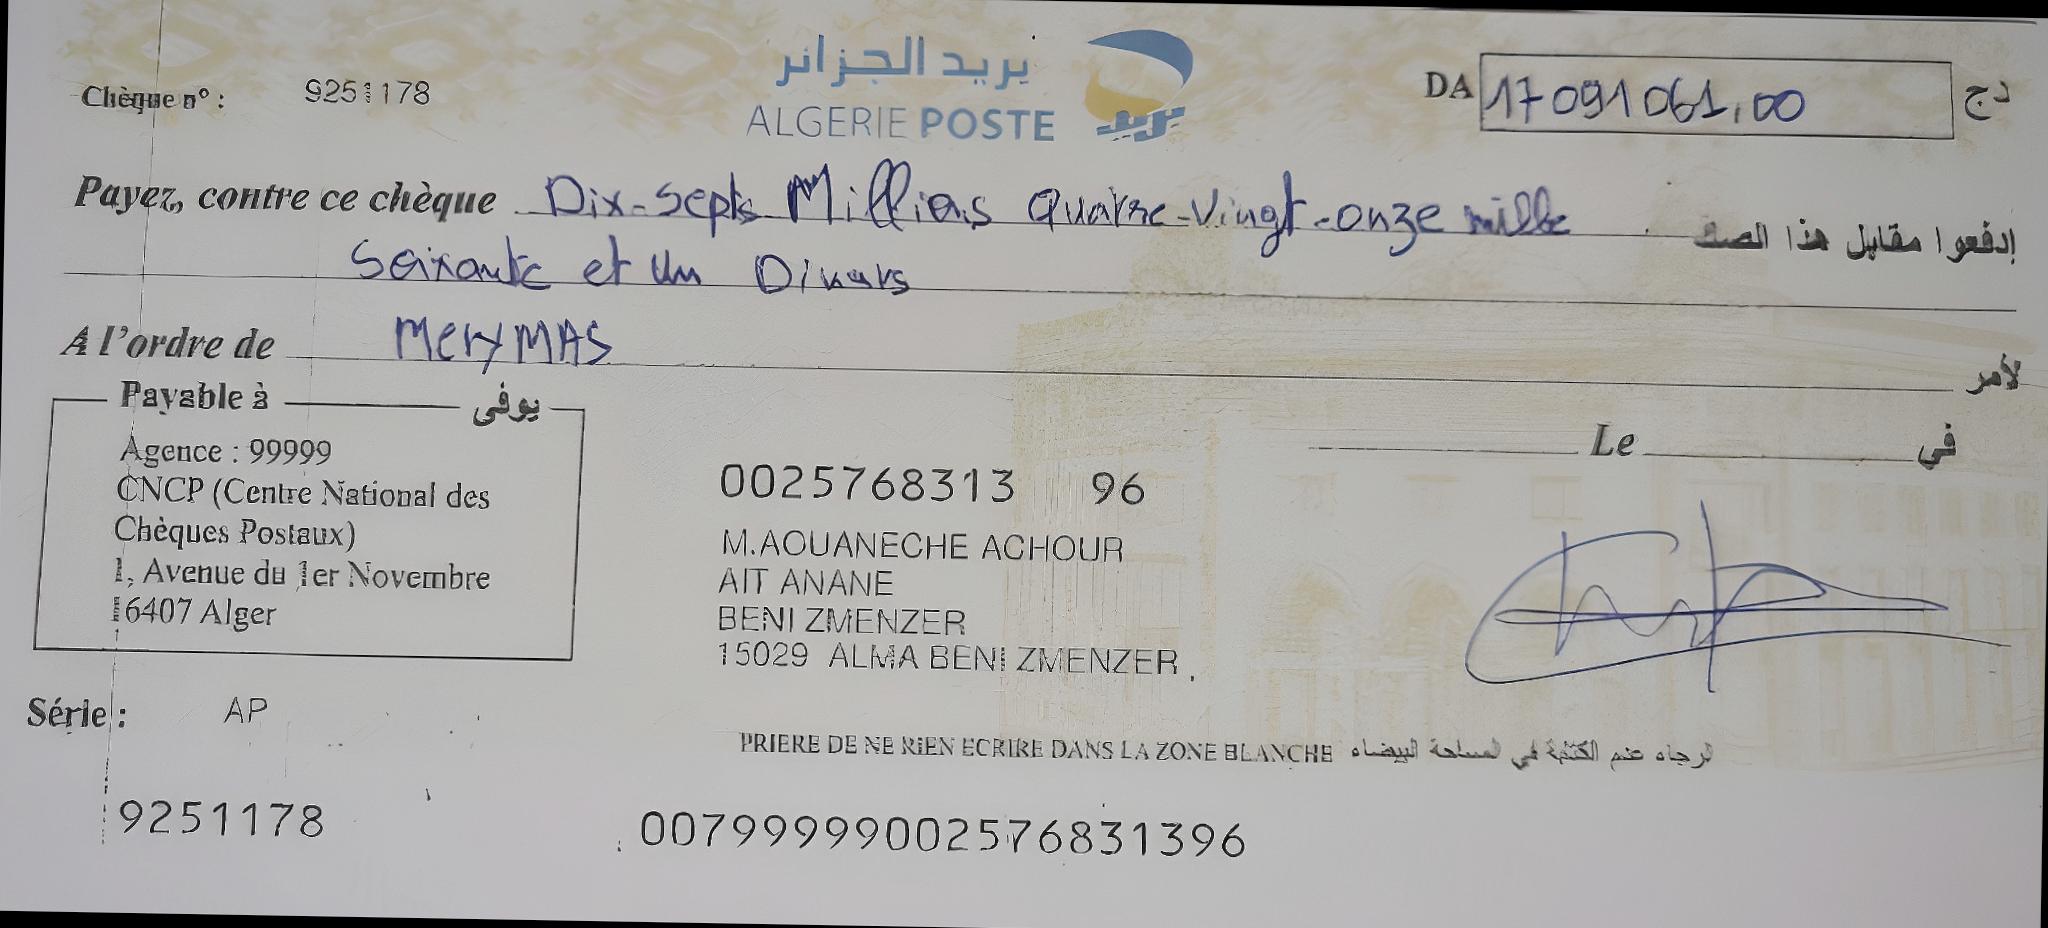 بريد الجزائر
ALGERIE POSTE
بريد
Chèque n° : 9251178
DA 17091061,00 دج
Payez, contre ce chèque Dix-Septs Millions Quatre-Vingt-onze mille إدفعوا مقابل هذا الصك
Soixante et un Dinars
A l'ordre de MeryMAS لأمر
Payable à يوفى
Agence : 99999
CNCP (Centre National des
Chèques Postaux)
1, Avenue du 1er Novembre
16407 Alger
Le في
0025768313 96
M.AOUANECHE ACHOUR
AIT ANANE
BENI ZMENZER
15029 ALMA BENI ZMENZER
Série : AP
PRIERE DE NE RIEN ECRIRE DANS LA ZONE BLANCHE الرجاء عدم الكتابة في المساحة البيضاء
9251178
00799999002576831396